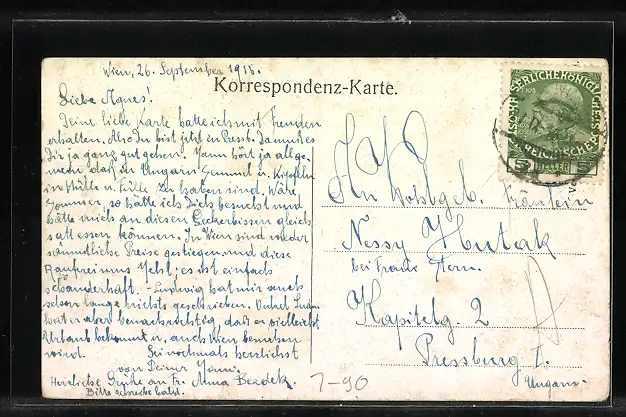 Wien, 26. September 1915.
Korrespondenz-Karte.
Liebe Agnes!
Deine liebe Karte hatte ich mit Freuden
erhalten. Also Du bist jetzt in Pressb. Da muß es
Dir ja ganz gut gehen. Mann hört ja allge-
mein daß in Ungarn Semmel u. Kipfeln
in Hülle u. Fülle zu haben sind. Wäre
Sommer, so hätte ich Dich besucht und
hätte mich an diesen Leckerbissen gleich
satt essen können. In Wien sind wieder
sämmtliche Preise gestiegen, und diese
Rauferei ums Mehl; es ist einfach
schauderhaft. - Ludwig hat mir auch
schon lange nichts geschrieben. Onkel
hat er aber benachrichtigt, daß er vielleicht
Urlaub bekommt u. auch Wien besuchen
wird. Sei nochmals herzlichst
von Deiner
Herzliche Grüße an Fr. Anna
Bitte schreibe bald.
7-90
KAISERLICHE KÖNIGLICHE
ÖSTERREICHISCHE POST
5 HELLER 5
An Wohlgeb. Fräulein
Nessy Hutak
bei Frau Stern.
Kapitelg 2
Pressburg I.
Ungarn.